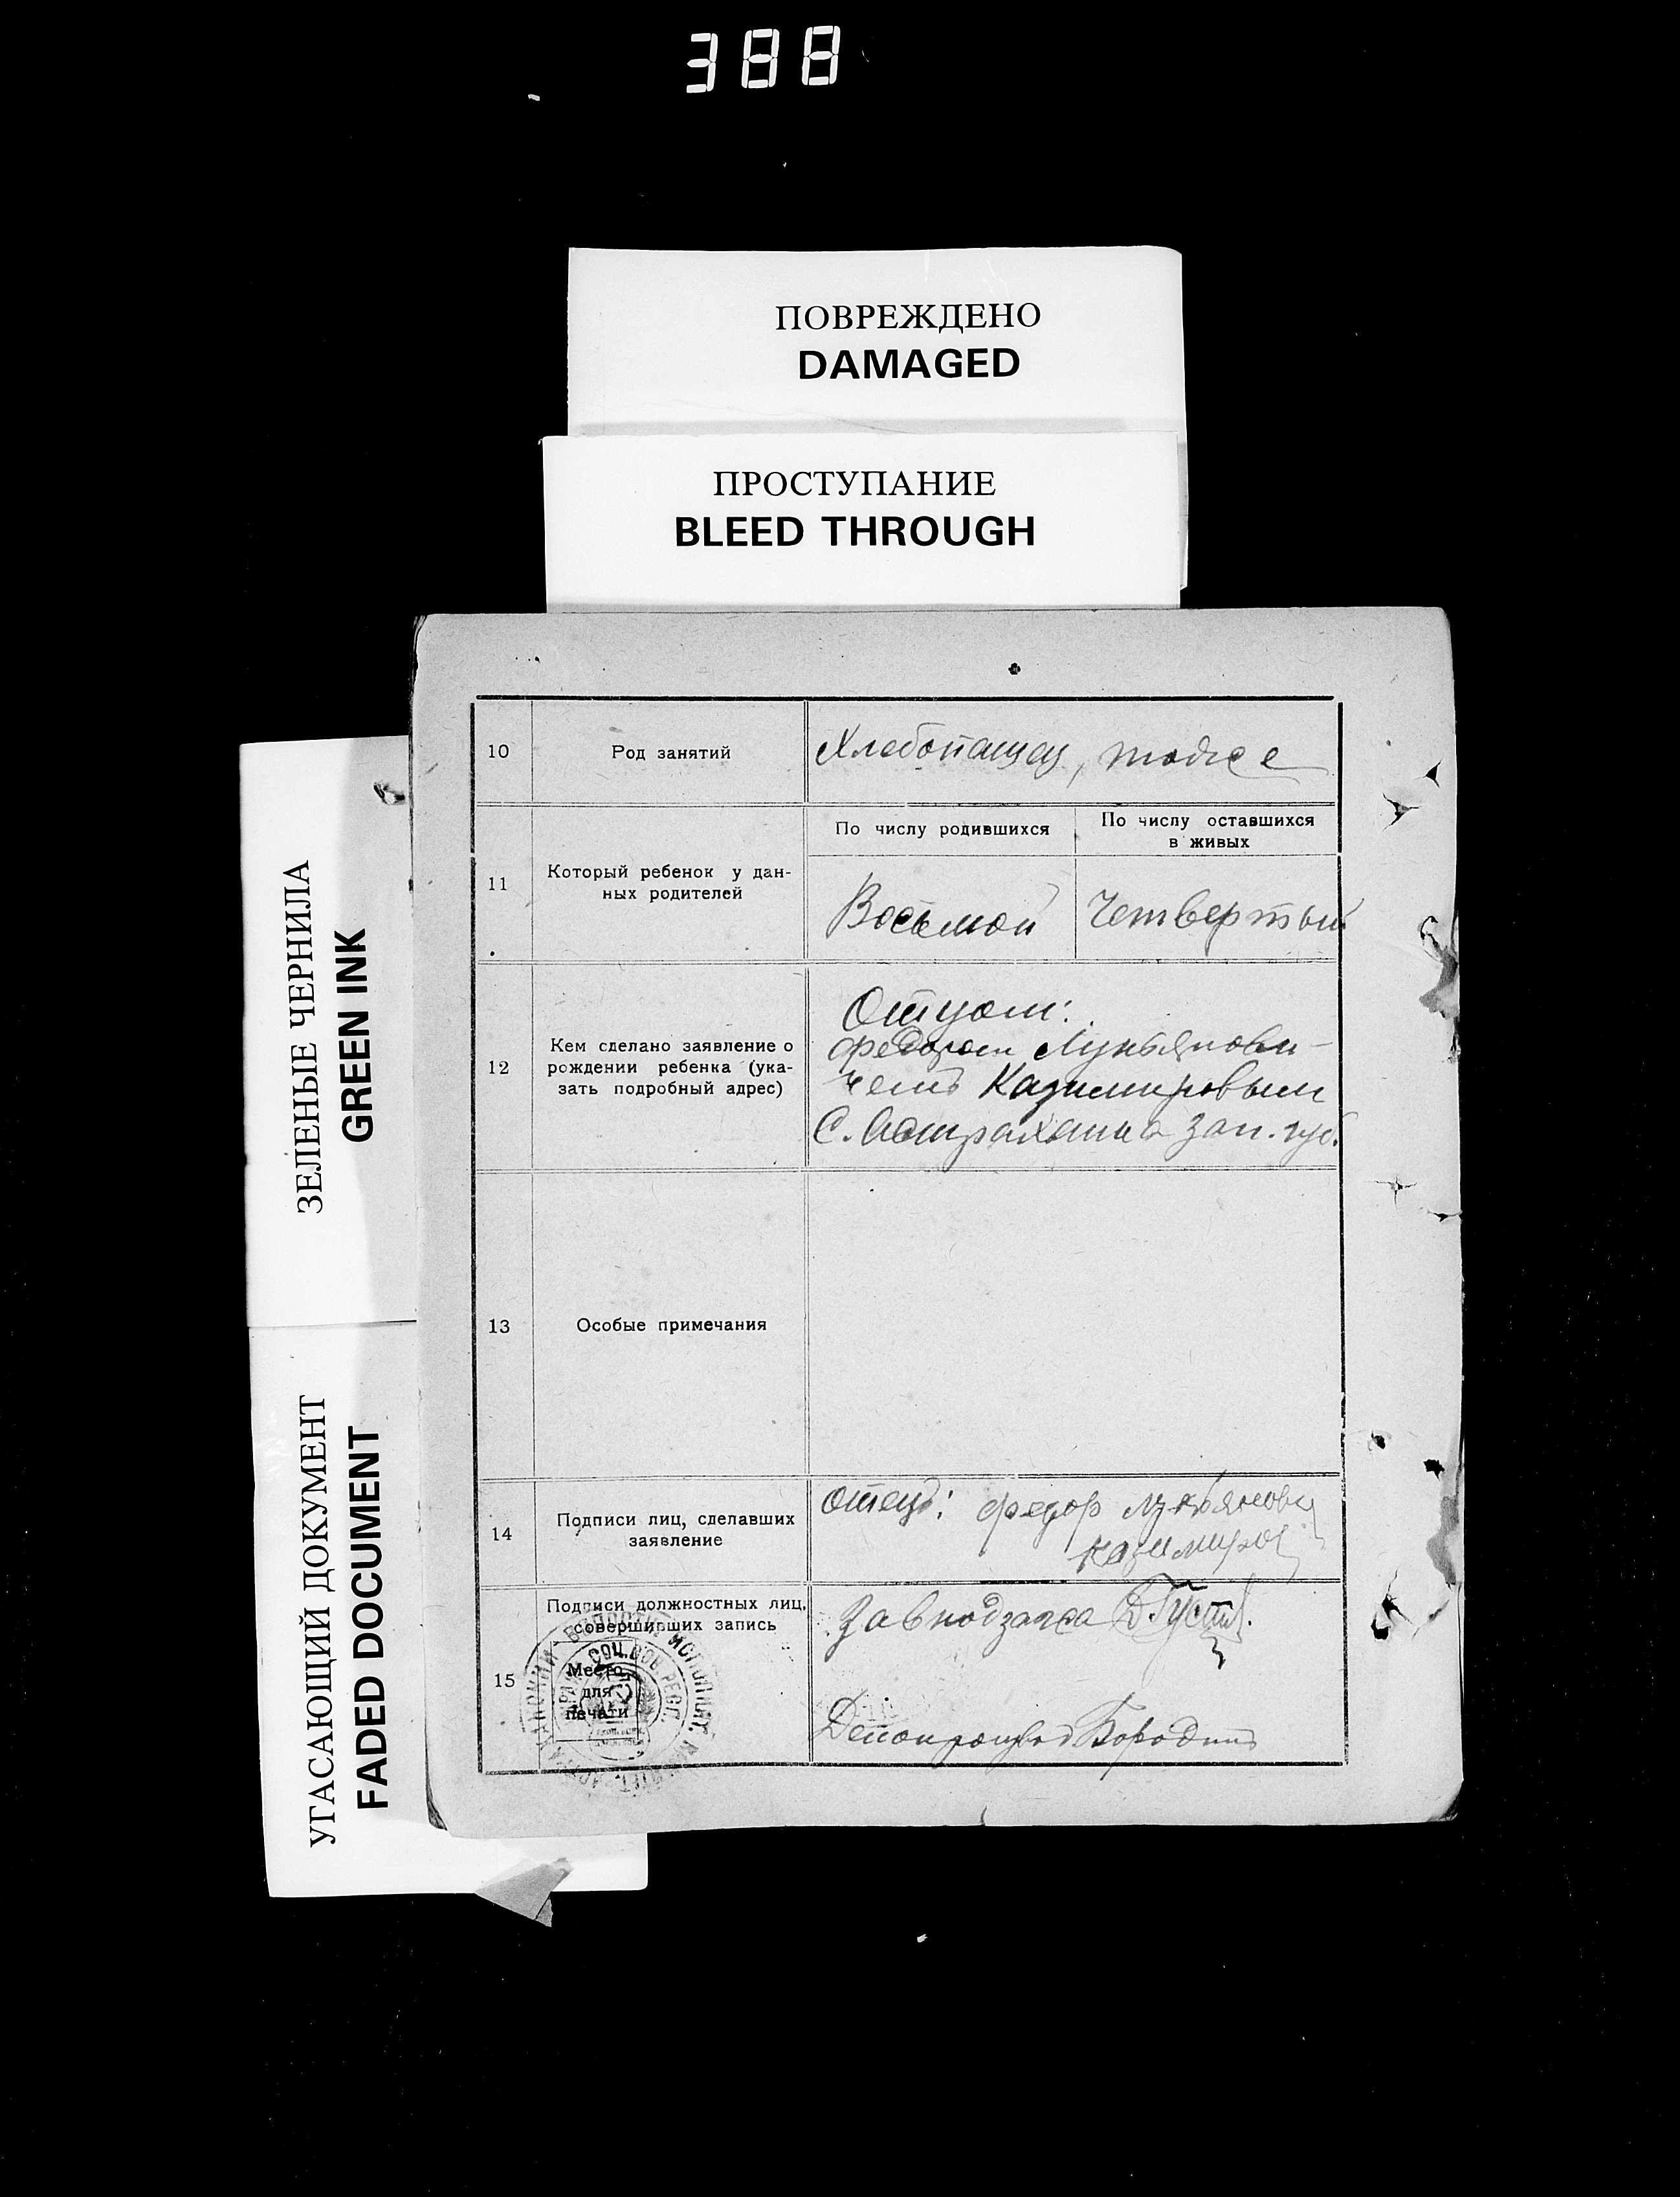 388
ПОВРЕЖДЕНО
DAMAGED
ПРОСТУПАНИЕ
BLEED THROUGH
ЗЕЛЕНЫЕ ЧЕРНИЛА
GREEN INK
УГАСАЮЩИЙ ДОКУМЕНТ
FADED DOCUMENT
10
Род занятий
Хлебопашец, тоже
11
Который ребенок у дан-
ных родителей
По числу родившихся
По числу оставшихся
в живых
Восьмой
Четвертый
12
Кем сделано заявление о
рождении ребенка (ука-
зать подробный адрес)
Отцом:
Федором Лукьянови-
чемъ Казимировым
С. Астраханка Зап. губ.
13
Особые примечания
14
Подписи лиц, сделавших
заявление
отецъ: федор лукьянови
казимиров
15
Подписи должностных лиц,
совершивших запись
Место
для
печати
Завподзагса
Делопроизвод Бородинъ